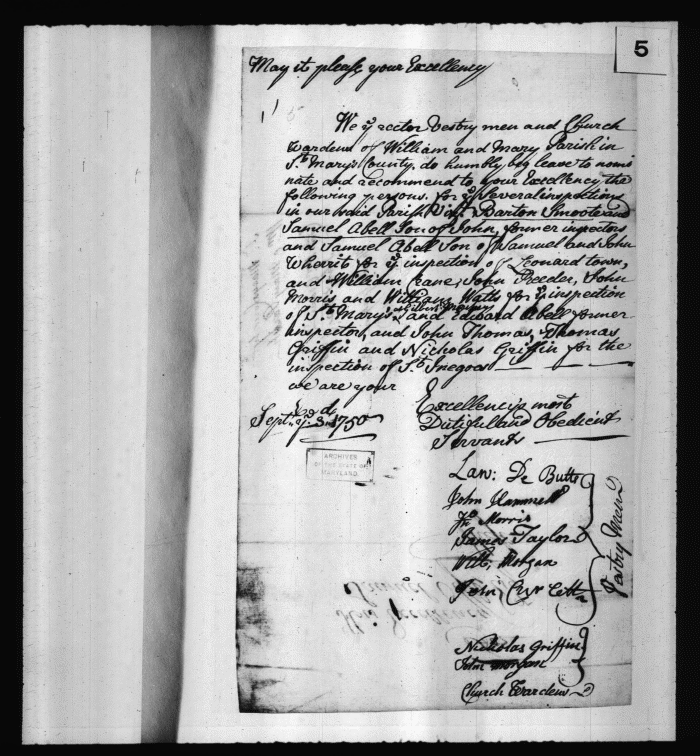 5
May it please your Excellency
We ye rector Vestry men and Church
wardens of William and Mary Parish in
St. Mary's County, do humbly beg leave to nomi
nate and recommend to your Excellency the
following persons, for ye Several inspections
in our said Parish Vizt. Barton Smoote and
Samuel Abell Son of John, former inspectors
and Samuel Abell Son of Samuel and John
Wherrit for ye inspection of Leonard town,
and William Crane, John Reeder, John
Morris and William Watts for ye inspection
of St. Mary's, and Edward Abell former
inspector, and John Thomas, Thomas
Griffin and Nicholas Griffin for the
inspection of St. Inegoas
we are your
Excellency's most
Dutiful and Obedient
Servants
Septr. ye 3d 1750
ARCHIVES
OF THE STATE OF
MARYLAND
Law: De Butts
John Hammett
Jno Morris
James Taylor
Will: Morgan
John
Vestry Men
Nicholas Griffin
John Morgan
Church Wardens